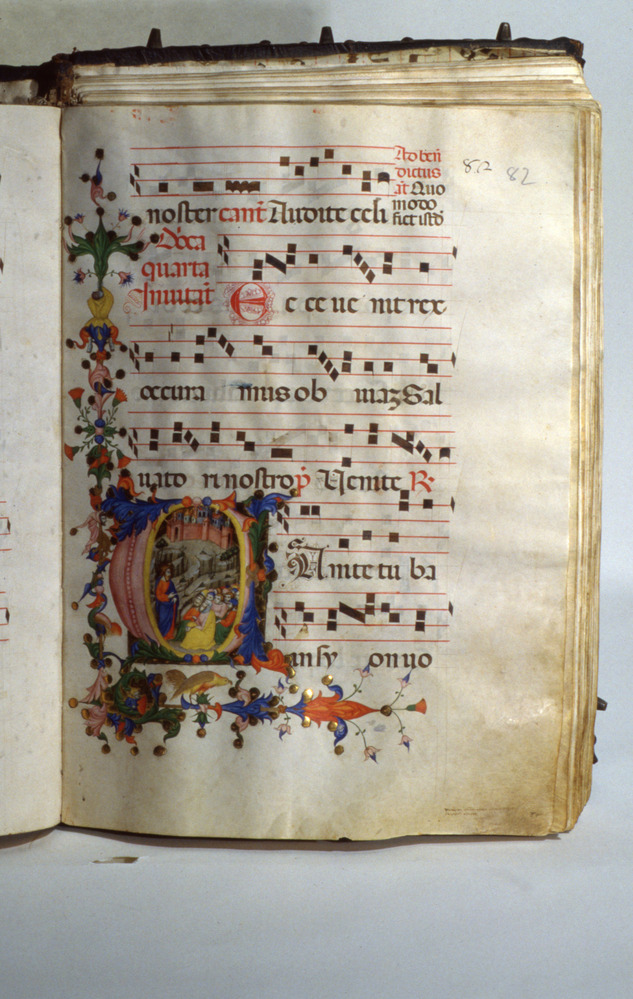 Ad ben
dictus
añt Quo
modo
fiet istd
noster cant̄ Audite celi
Dn̄ca
quarta
Inuitat̄ E c ce ue nit rex
occura mus ob uiaz Sal
uato ri nostro p̄ Uenite R
C A nite tu ba
in sy on uo
82 82